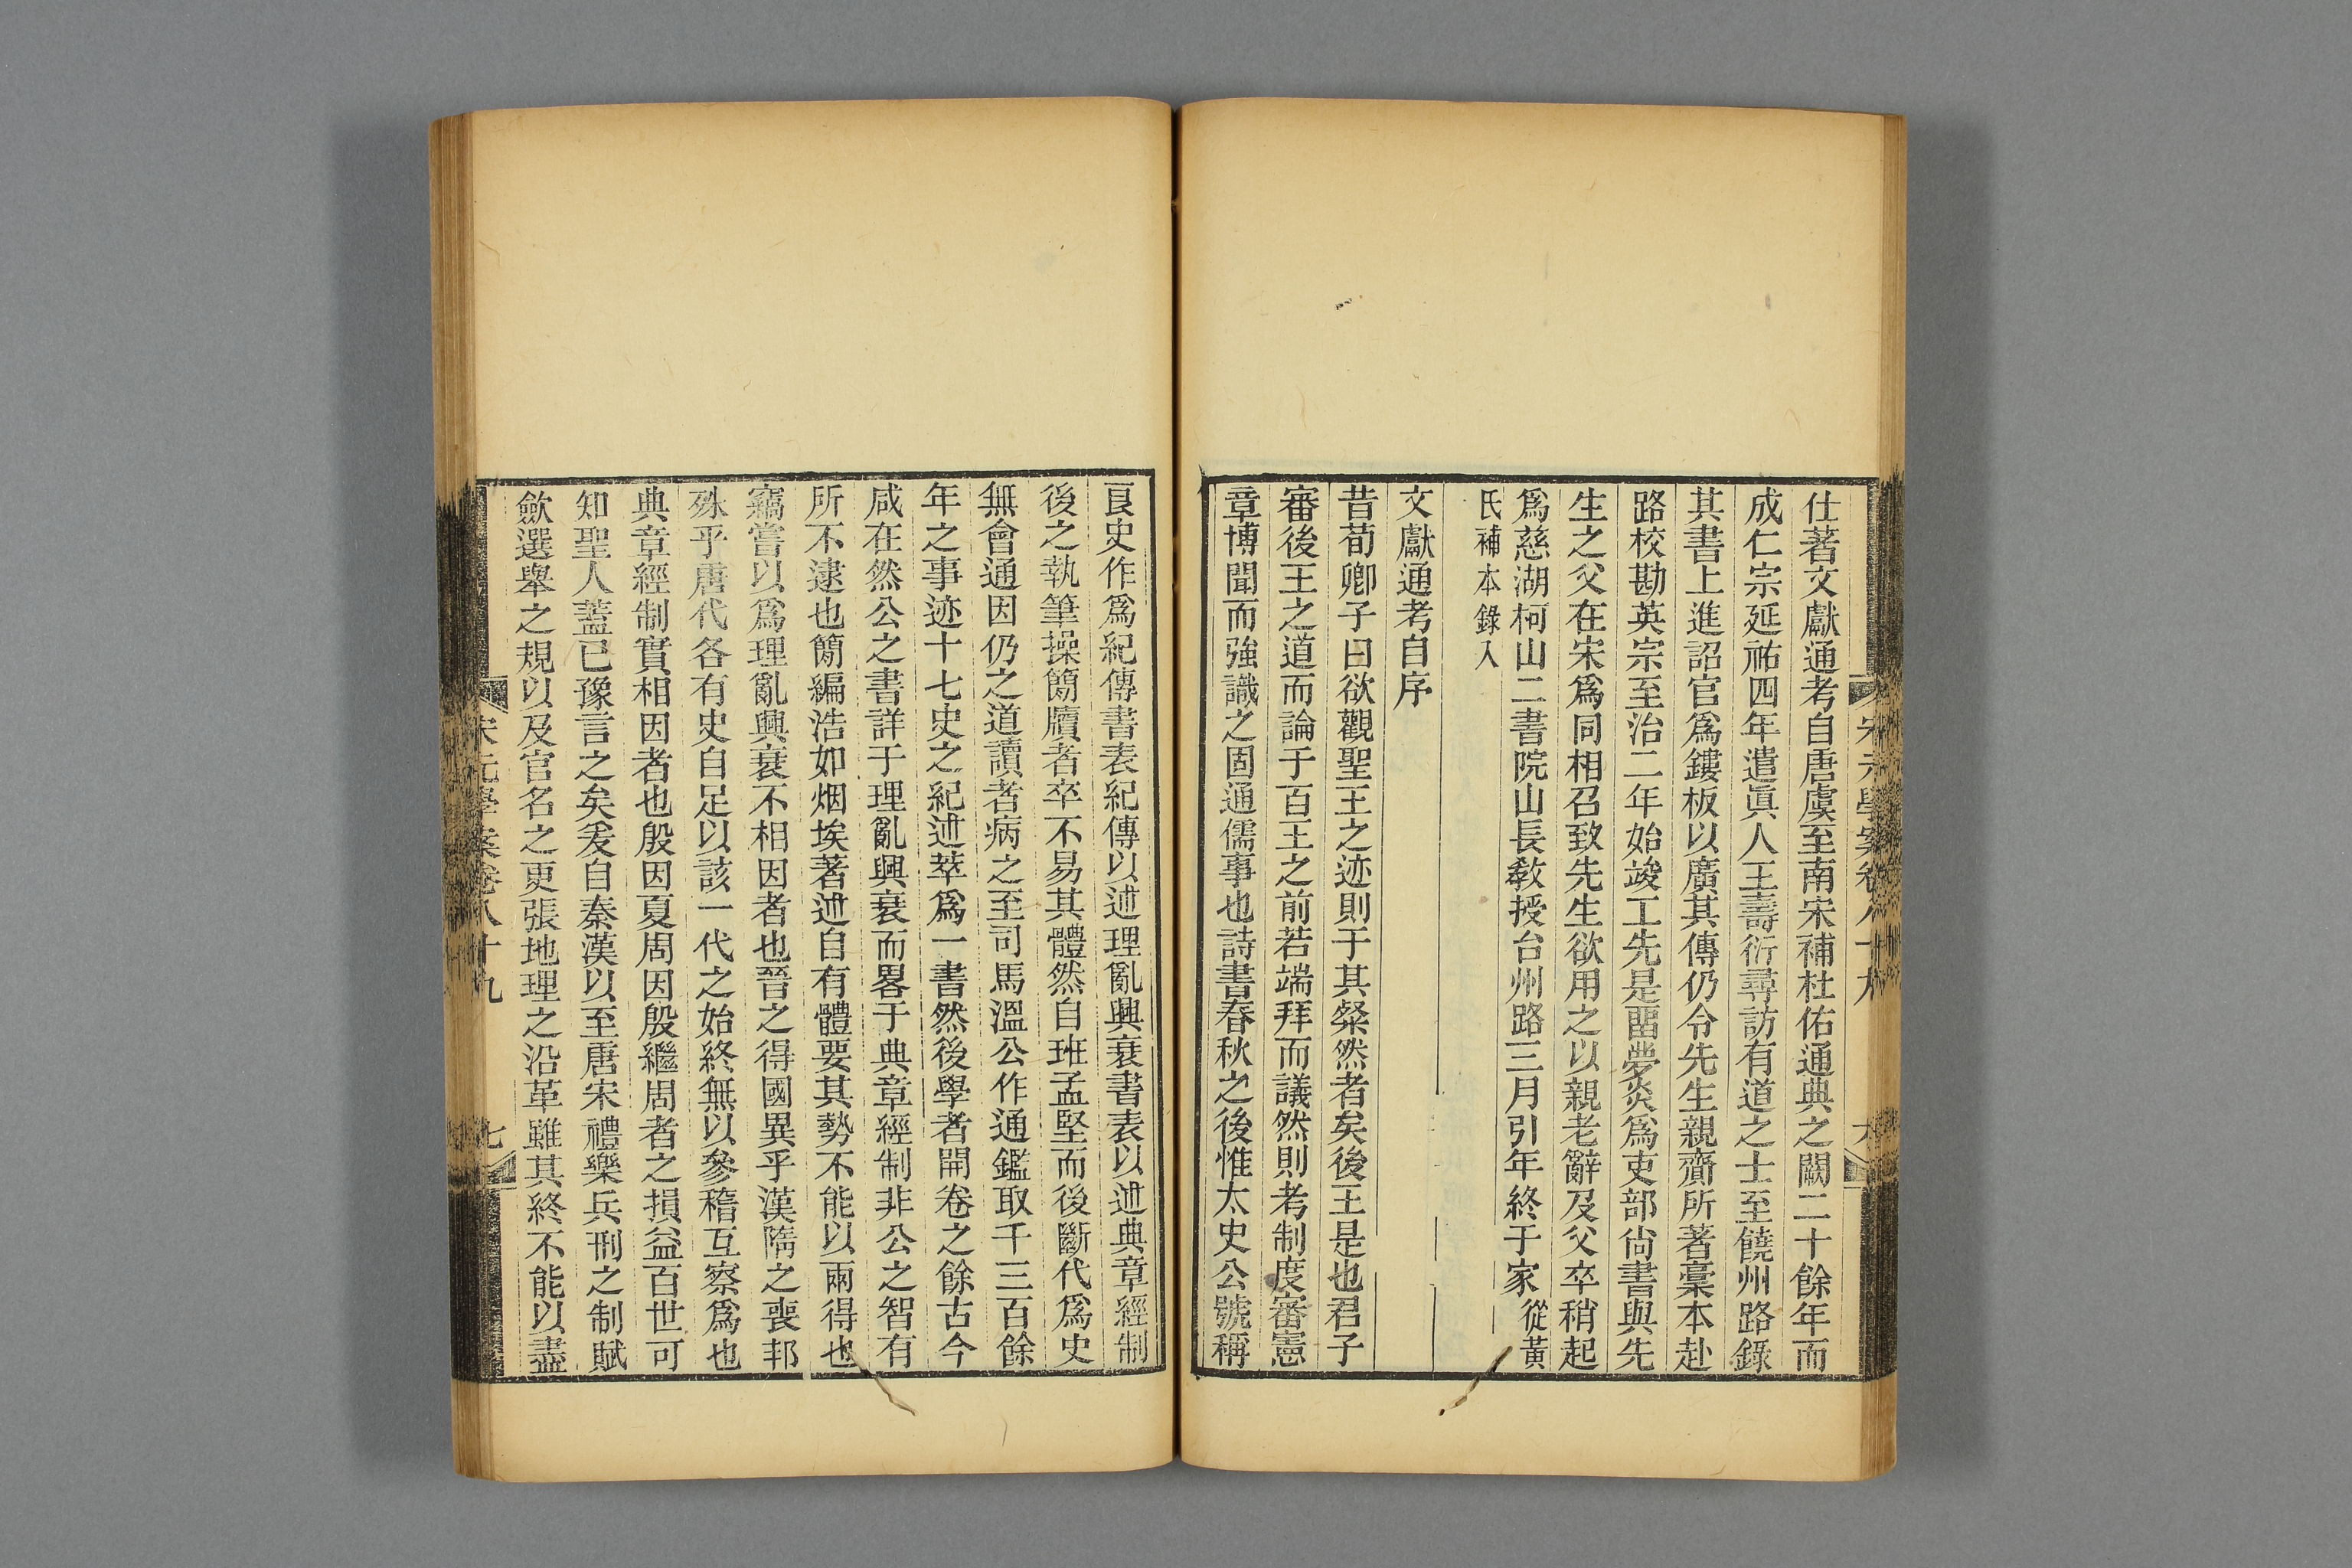 仕著文獻通考自唐虞至南宋補杜佑通典之闕二十餘年而
成仁宗延祐四年遣眞人王壽衍尋訪有道之士至饒州路錄
其書上進詔官爲鏤板以廣其傳仍令先生親齎所著稾本赴
路校勘英宗至治二年始竣工先是畱夢炎爲吏部尙書與先
生之父在宋爲同相召致先生欲用之以親老辭及父卒稍起
爲慈湖柯山二書院山長敎授台州路三月引年終于家從黃
氏補本錄入
文獻通考自序
昔荀卿子曰欲觀聖王之迹則于其粲然者矣後王是也君子
審後王之道而論于百王之前若端拜而議然則考制度審憲
章博聞而強識之固通儒事也詩書春秋之後惟太史公號稱
良史作爲紀傳書表紀傳以述理亂興衰書表以述典章經制
後之執筆操簡牘者卒不易其體然自班孟堅而後斷代爲史
無會通因仍之道讀者病之至司馬溫公作通鑑取千三百餘
年之事迹十七史之紀述萃爲一書然後學者開卷之餘古今
咸在然公之書詳于理亂興衰而畧于典章經制非公之智有
所不逮也簡編浩如烟埃著述自有體要其勢不能以兩得也
竊嘗以爲理亂興衰不相因者也晉之得國異乎漢隋之喪邦
殊乎唐代各有史自足以該一代之始終無以參稽互察爲也
典章經制實相因者也殷因夏周因殷繼周者之損益百世可
知聖人蓋已豫言之矣爰自秦漢以至唐宋禮樂兵刑之制賦
歛選舉之規以及官名之更張地理之沿革雖其終不能以盡
宋元學案卷八十九
七